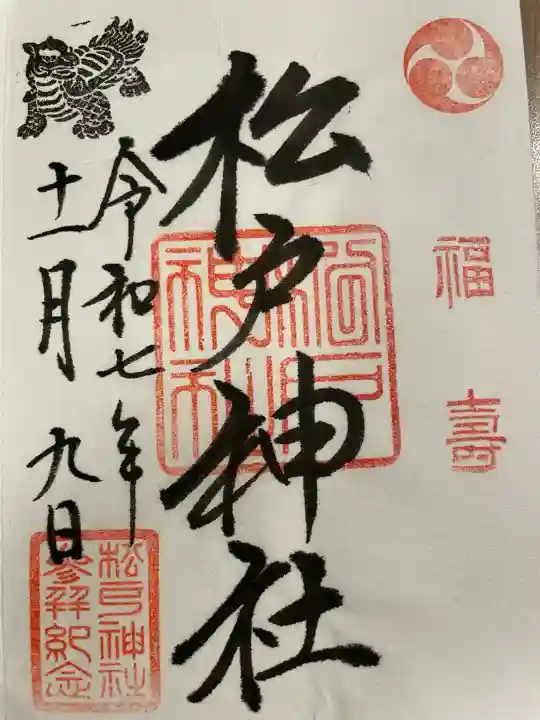 福壽
松戸神社
松戸神社
令和七年
十一月九日
松戸神社
参拝紀念